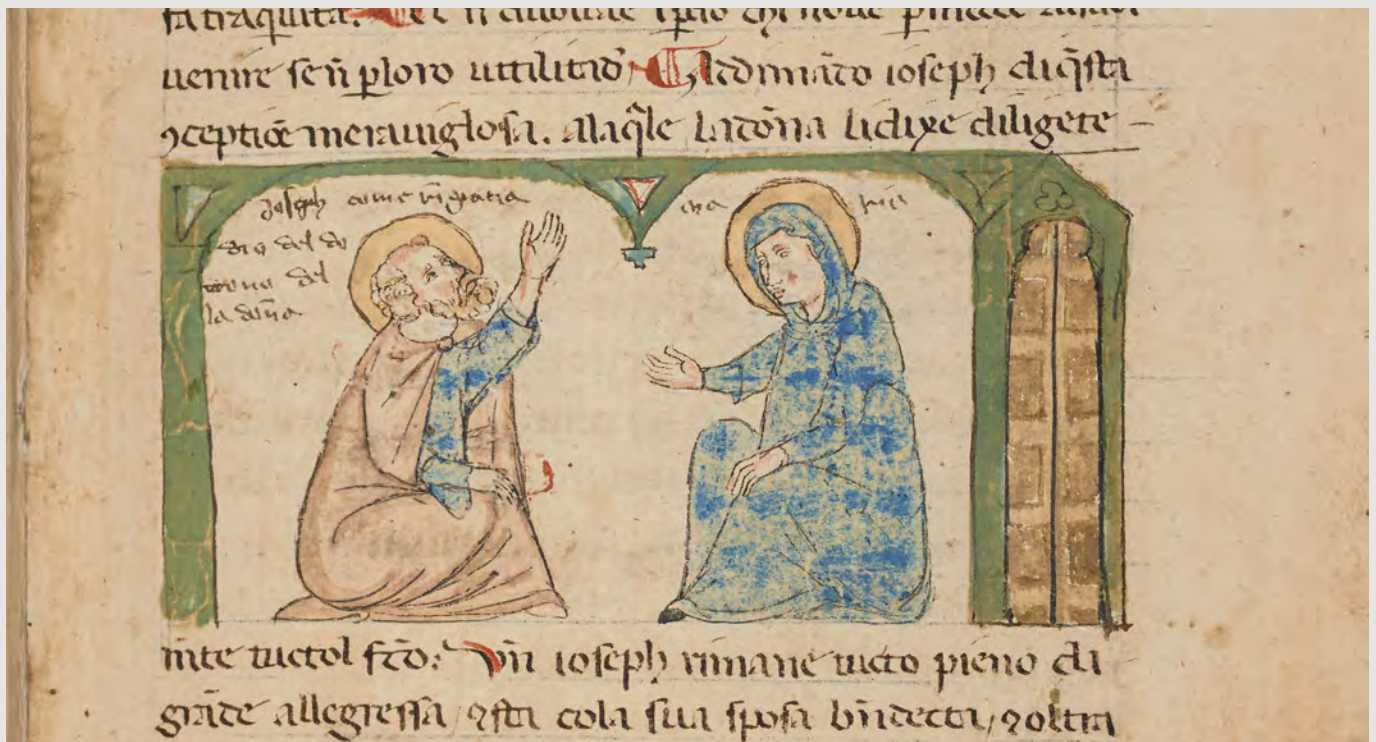 uenire se n̄ ꝑ loro uttilitad᷒
ioseph di q̄sta
ꝯceptiōe merauiglosa. ala q̄le la dōna li dixe diligēte
Joseph come rīgratia
dio del do
no del
la dōna
ma ria
m̄te tucto l fc̄o: Vn̄ ioseph rimane tucto pieno di
grāde allegressa / ꝯ sta cola sua sposa bn̄decta / ꝯ oltra